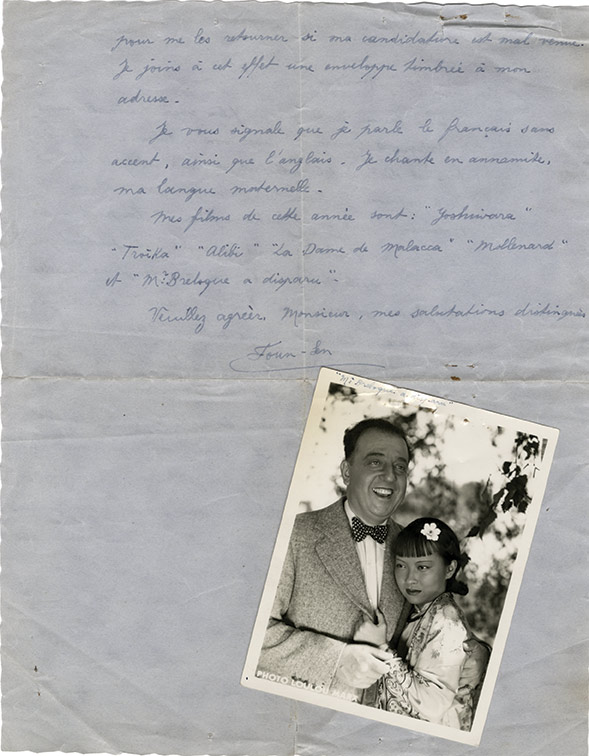 pour me les retourner si ma candidature est mal venue.
Je joins à cet effet une enveloppe timbrée à mon
adresse.
Je vous signale que je parle le français sans
accent, ainsi que l'anglais. Je chante en annamite,
ma langue maternelle.
Mes films de cette année sont: "Yoshiwara"
"Troïka" "Alibi" "La Dame de Malacca" "Mollenard"
et "Mr. Breloque a disparu".
Veuillez agréer, Monsieur, mes salutations distingués
Foun-Sen
"Mr. Breloque a disparu"
PHOTO